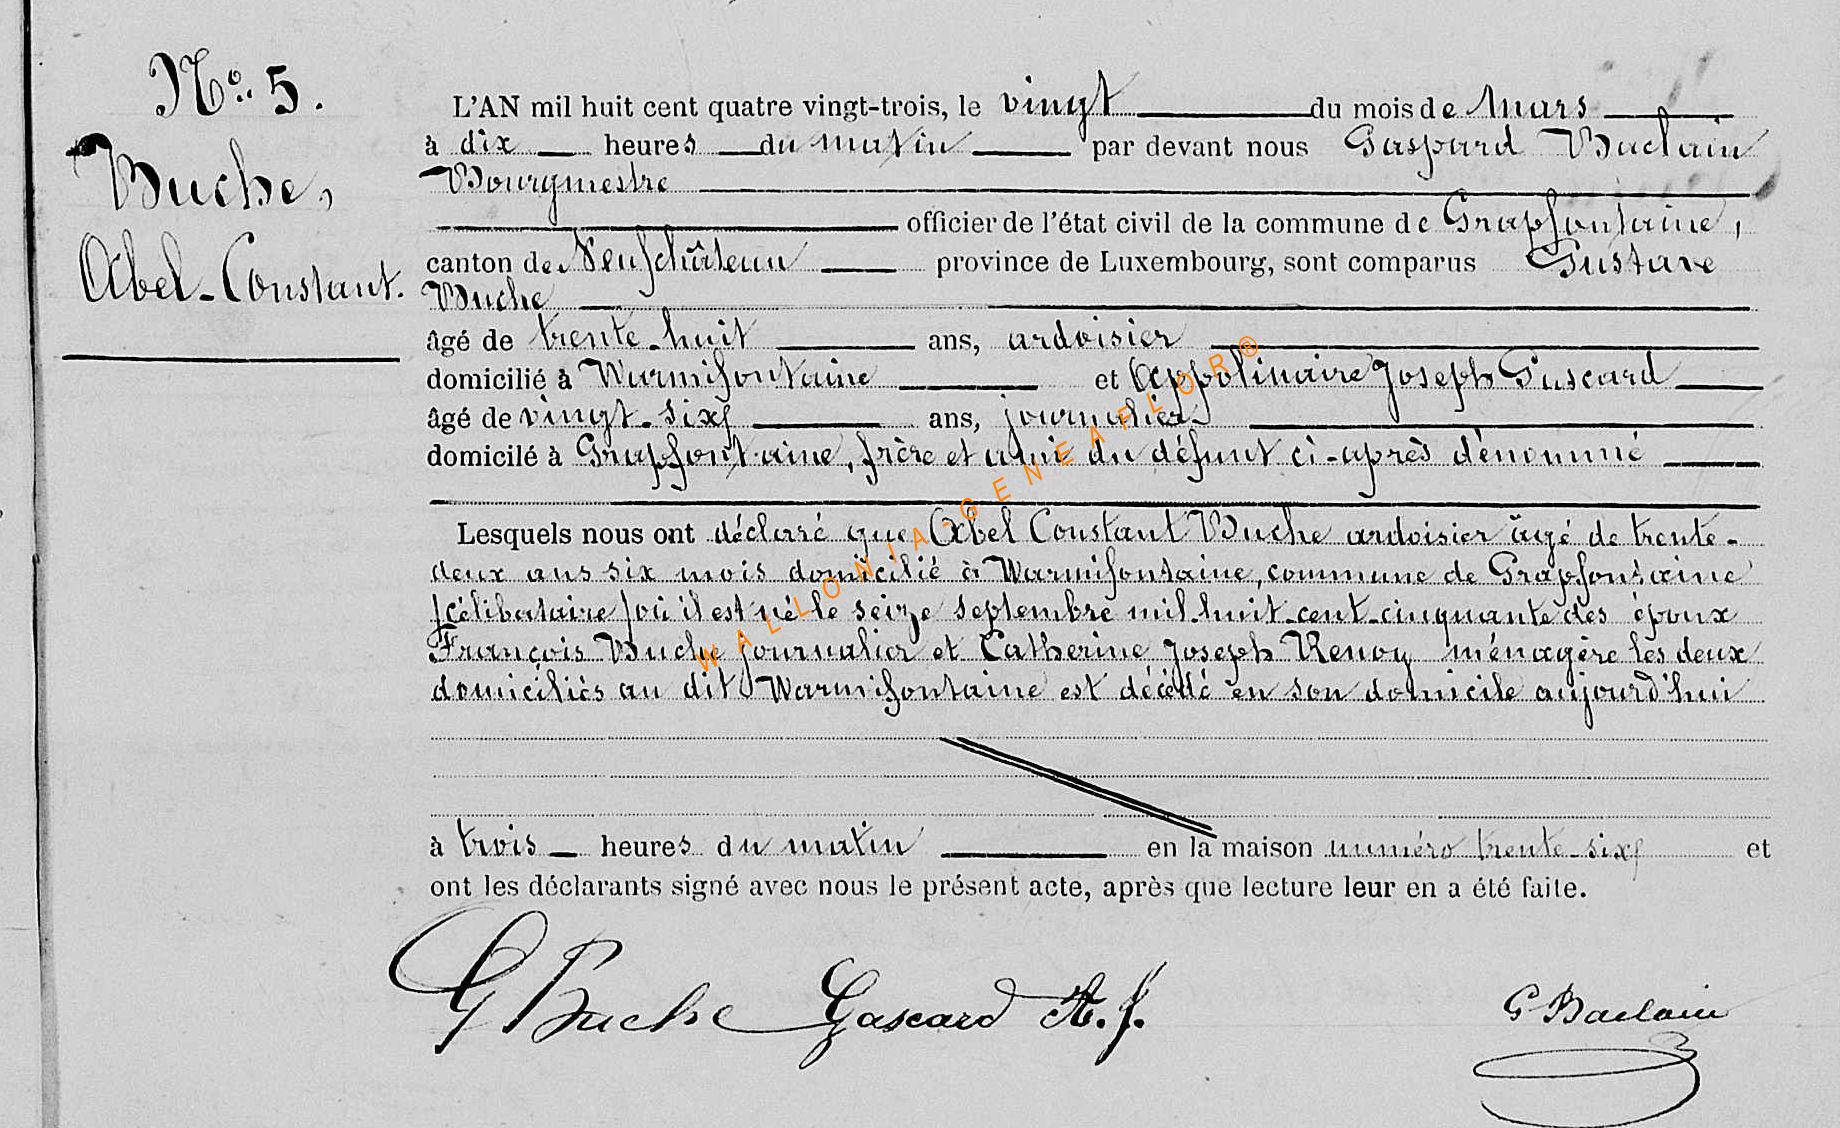 No. 5.
Buche,
Abel-Constant.
L'AN mil huit cent quatre vingt-trois, le vingt du mois de Mars
à dix heures du matin par devant nous Gaspard Baclain
Bourgmestre
officier de l'état civil de la commune de Grapfontaine,
canton de Neufchâteau province de Luxembourg, sont comparus Gustave
Buche
âgé de trente-huit ans, ardoisier
domicilié à Warmifontaine et Appolinaire Joseph Gascard
âgé de vingt-six ans, journalier
domicilé à Grapfontaine, frère et ami du défunt ci-après dénommé
Lesquels nous ont déclaré que Abel Constant Buche ardoisier âgé de trente-
deux ans six mois domicilié à Warmifontaine, commune de Grapfontaine
(célibataire) où il est né le seize septembre mil-huit-cent-cinquante des époux
François Buche journalier et Catherine Joseph Renoy ménagère les deux
domiciliés au dit Warmifontaine est décédé en son domicile aujourd'hui
à trois heures du matin en la maison numéro trente-six et
ont les déclarants signé avec nous le présent acte, après que lecture leur en a été faite.
G Buche Gascard A. J. G Baclain
WALLONIA-GENEAFLOR®